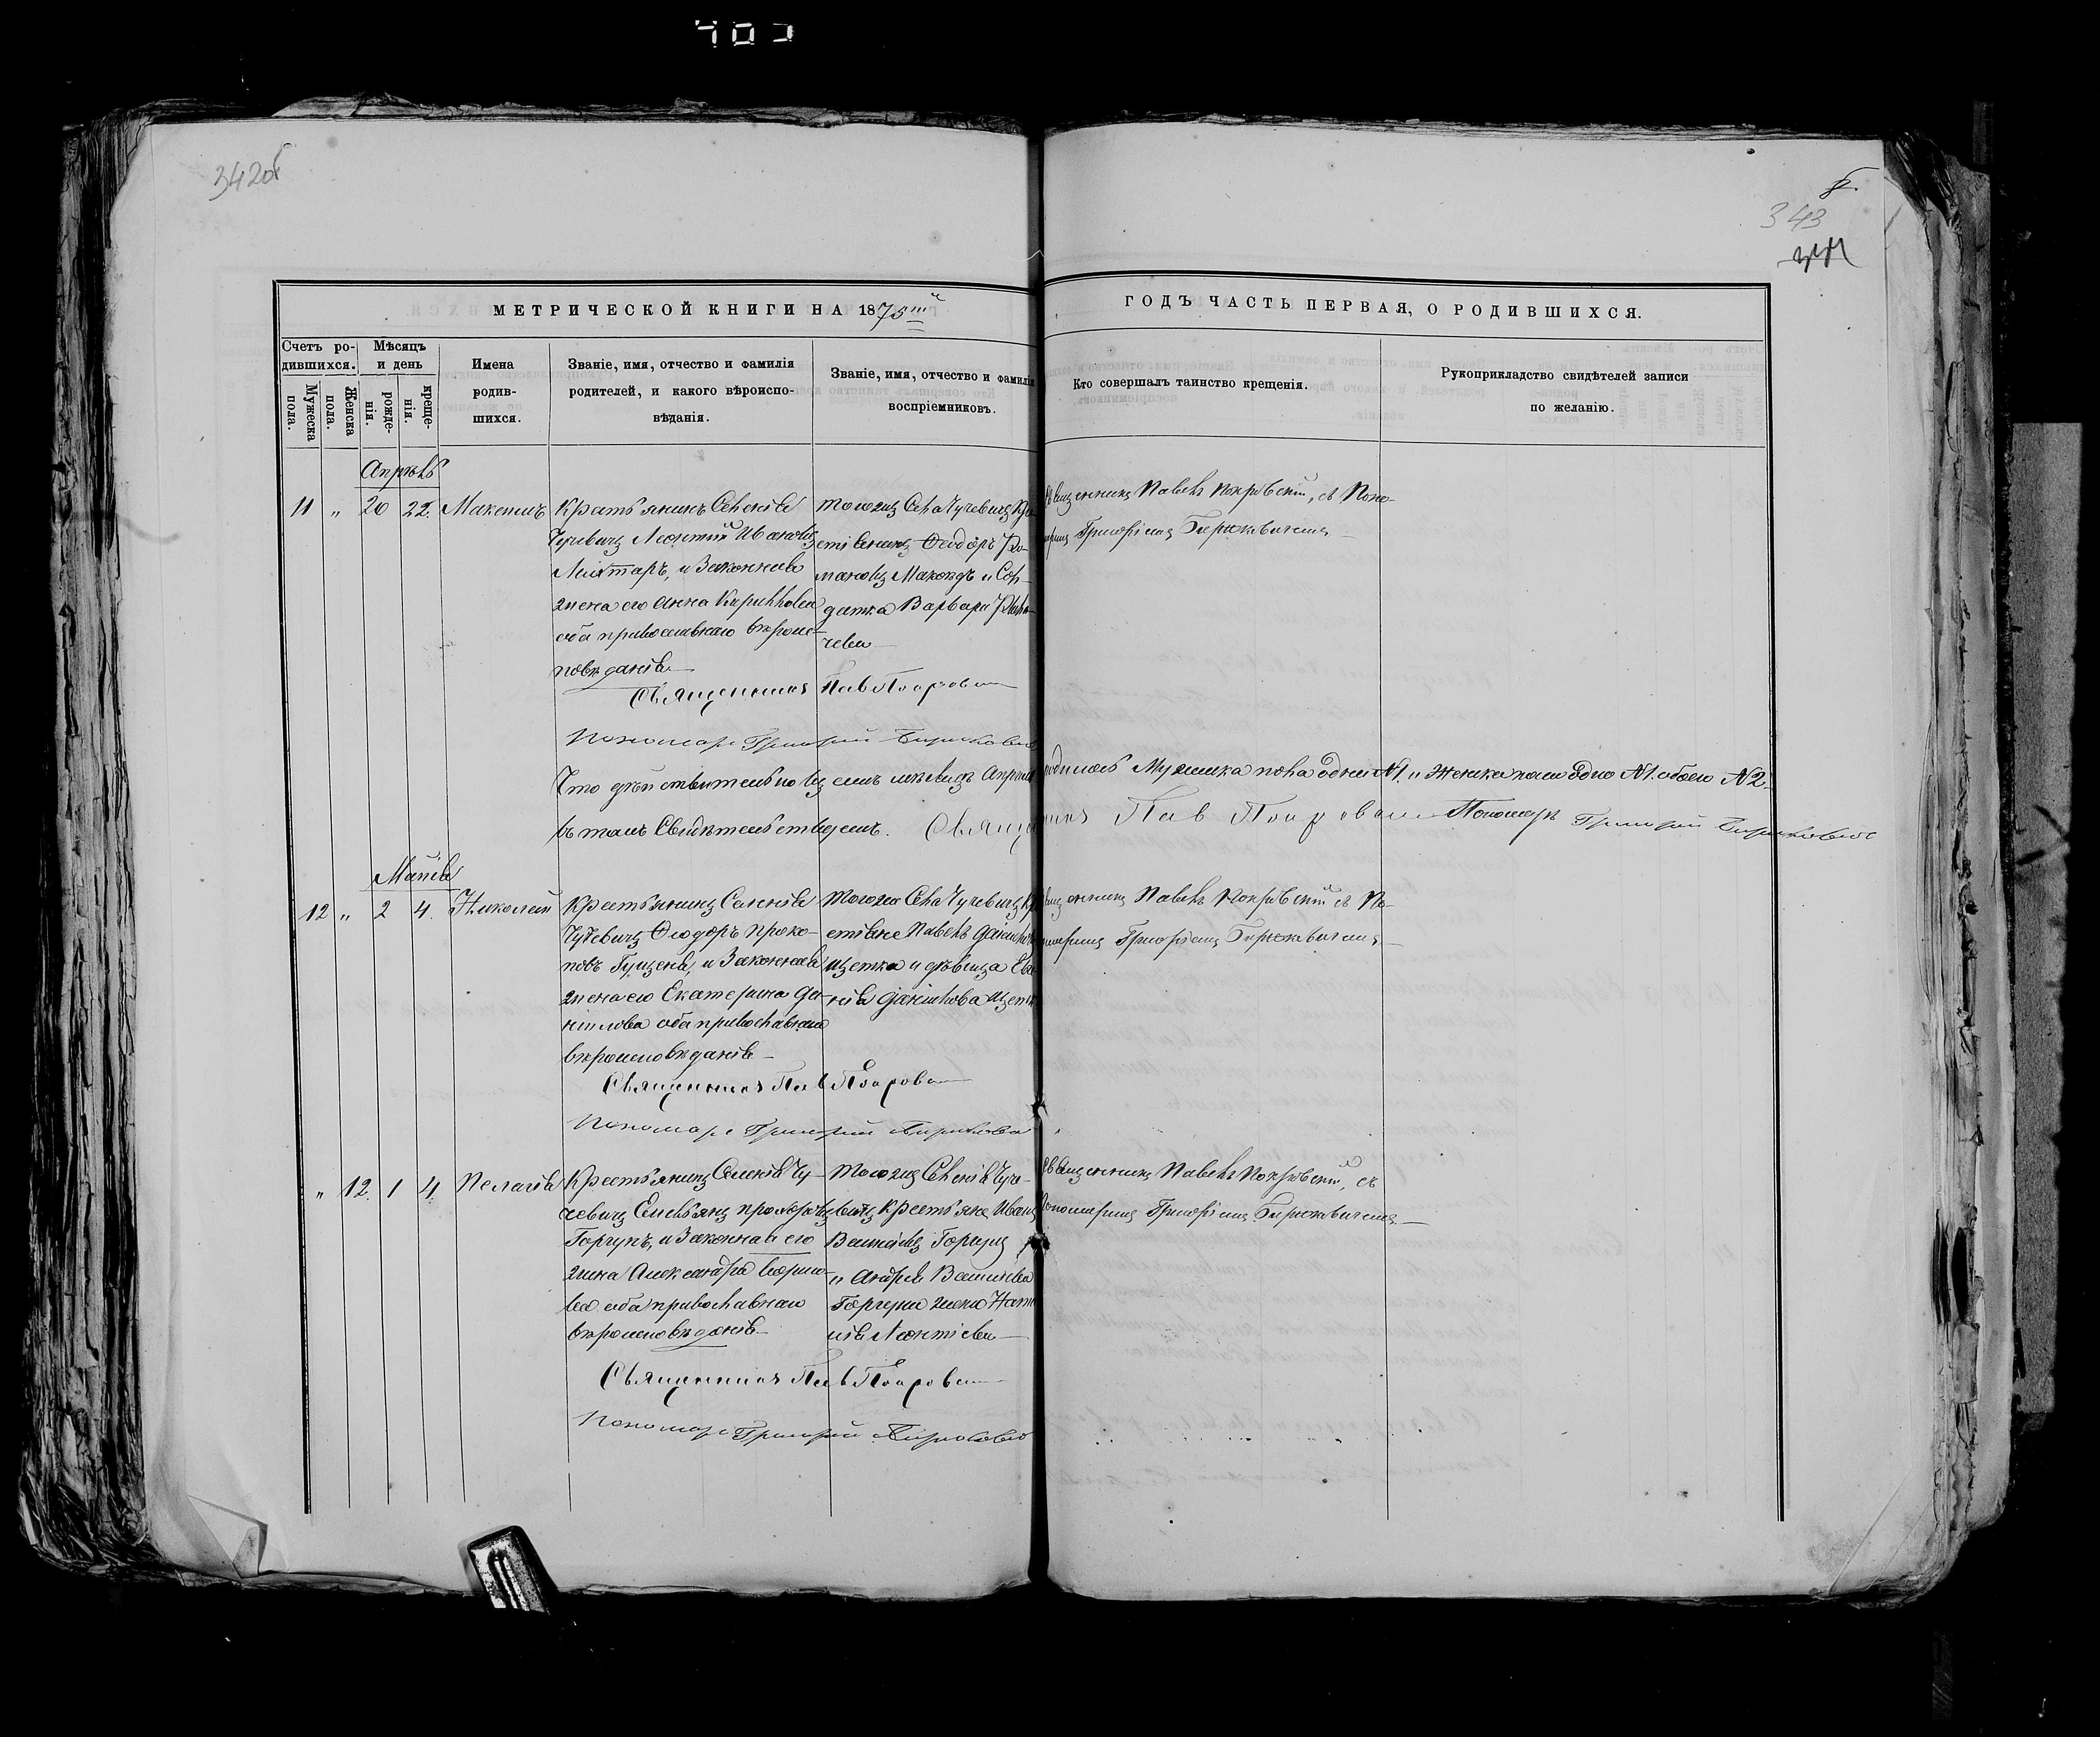 403
342об
8.
343
344
МЕТРИЧЕСКОЙ КНИГИ НА 1875ий
ГОДЪ ЧАСТЬ ПЕРВАЯ, О РОДИВШИХСЯ.
Счетъ ро-
дившихся.
Мужеска
пола.
Женска
пола.
Мѣсяцъ
и день
рожде-
нія.
креще-
нія.
Имена
родив-
шихся.
Званіе, имя, отчество и фамилія
родителей, и какого вѣроиспо-
вѣданія.
Званіе, имя, отчество и фамилія
воспріемниковъ.
Кто совершалъ таинство крещенія.
Рукоприкладство свидѣтелей записи
по желанію.
Апрѣль
11 „ 20 22. Максимъ
Крестьянинъ Селенія
Чучевичъ Леонтій Ивановъ
и Законная
жена его Анна Кирилова
оба православнаго вѣроис-
повѣданія
Тогожъ Села Чучевичъ Кре-
стьянинъ Ѳеодоръ Ро-
мановъ и Сол-
датка Варвара
Священникъ Павелъ Покровскій, съ Поно-
маремъ Григоріемъ Бирюковичемъ
Священникъ Пав Покровск
Пономарь Григорій Бирюкович
Что дѣйствительно въ семъ мѣсяцѣ Апрѣлѣ родилось Мужеска пола одинъ №1. и Женска пола одно №1. обоего №2.
въ томъ Свидѣтельствуемъ. Священник Пав Покровск Пономарь Григорій Бирюкович
Маія
12 „ 2 4. Николай
Крестьянинъ Селенія
Чучевичъ Ѳеодоръ Проко-
повъ и Законная
жена его Екатерина Да-
ніилова оба православнаго
вѣроисповѣданія
Тогожъ Села Чучевичъ Кр
естьяне Павелъ Даниловъ
Щетка и дѣвица Ев
Данилова Щетк
Священникъ Павелъ Покровскій съ По-
номаремъ Григоріемъ Бирюковичемъ
Священникъ Пав Покровск
Пономарь Григорій Бирюкова
„ 12. 1 4. Пелагія
Крестьянинъ Селенія Чу-
чевичъ Емельянъ
Горгунъ, и Законная его
жена Александра
ва оба православнаго
вѣроисповѣданія
Тогожъ Селенія Чуче-
вичъ Крестьяне Иванъ
Василіевъ Горгунъ
и Андрея Василіева
Горгуна жена
Леонтіева
Священникъ Павелъ Покровскій, съ
Пономаремъ Григоріемъ Бирюковичемъ
Священникъ Пав Покровск
Пономарь Григорій Бирюкович